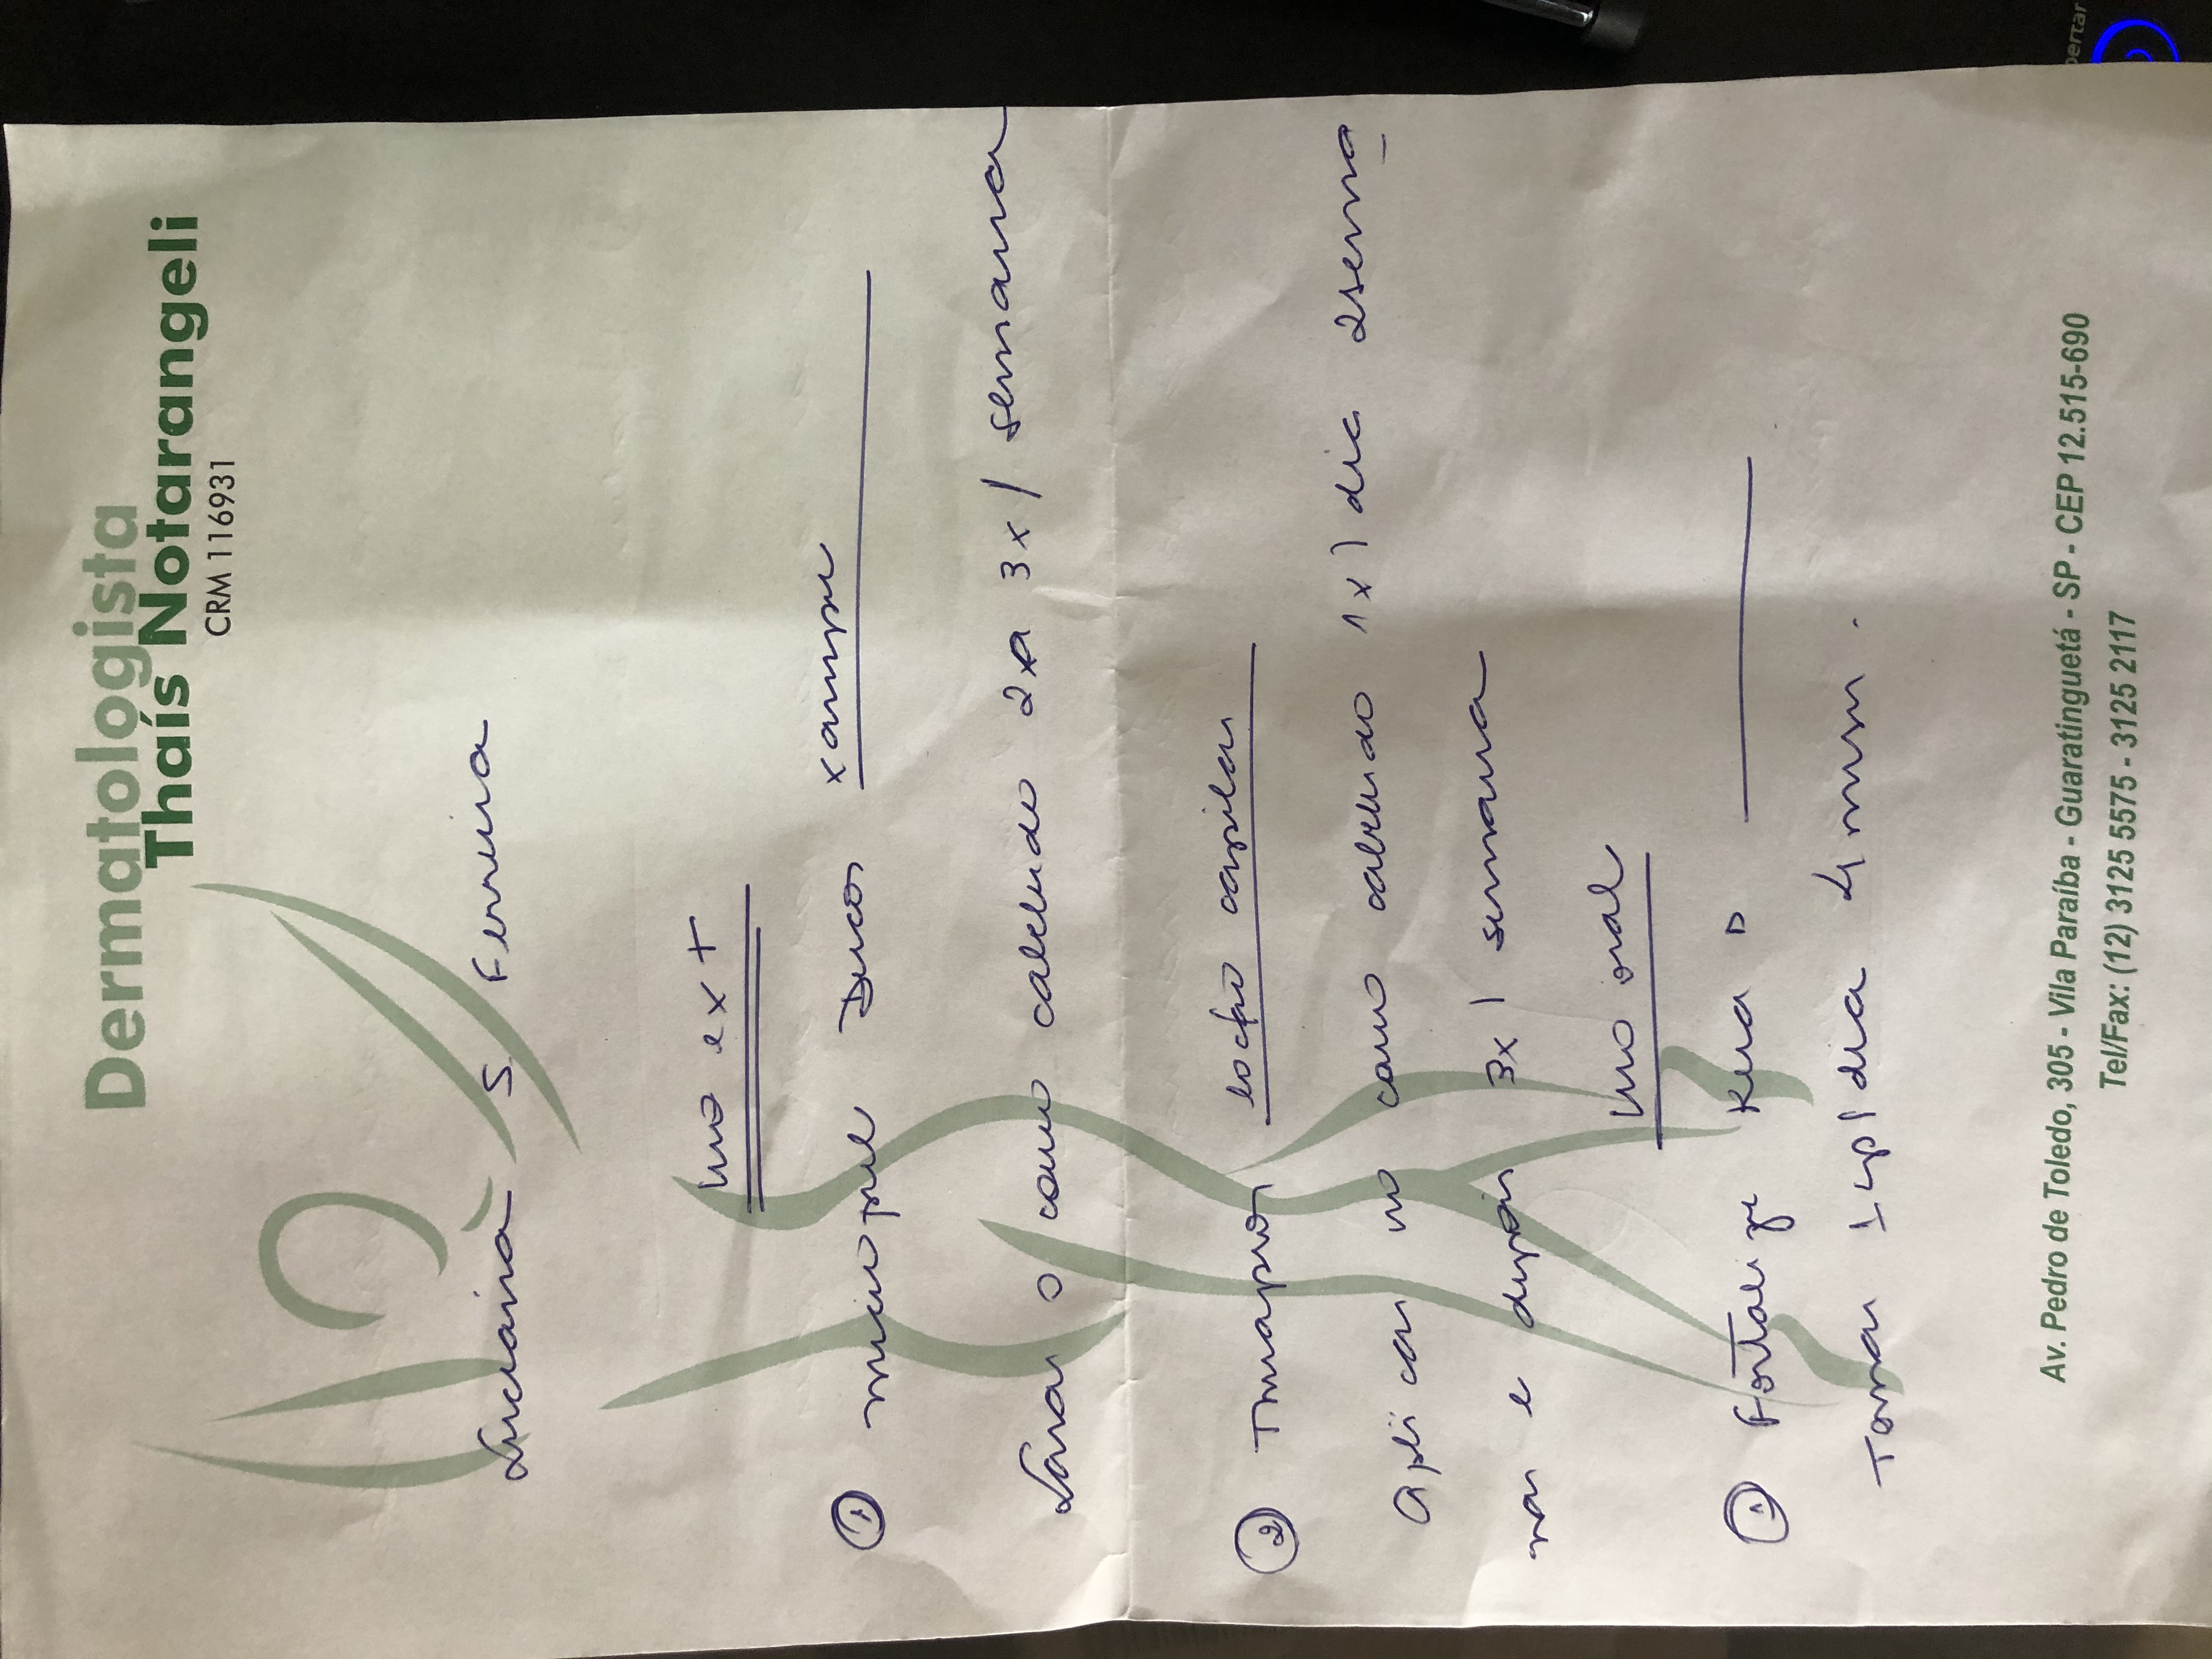 Dermatologista
Thaís Notarangeli
CRM 116931
Luciana S. Ferreira
uso ext
1 Ducas xampu
Lavar o couro cabeludo 2xa 3x/ semana
2 loção capilar
Aplicar no couro cabeludo 1x/dia 2sema
nas e depois 3x/ semana
uso oral
1 Fortalize Kera D
Tomar 1cp/dia 4 meses.
Av. Pedro de Toledo, 305 - Vila Paraíba - Guaratinguetá - SP - CEP 12.515-690
Tel/Fax: (12) 3125 5575 - 3125 2117